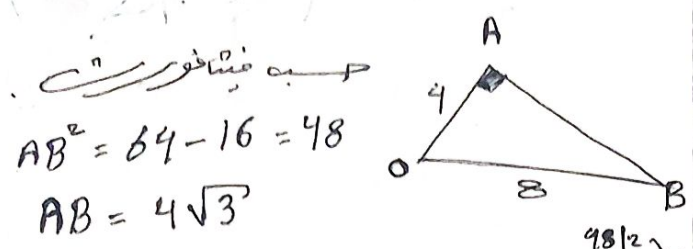 حسب فيثاغورث
AB² = 64 - 16 = 48
AB = 4√3
A
4
O
8
B